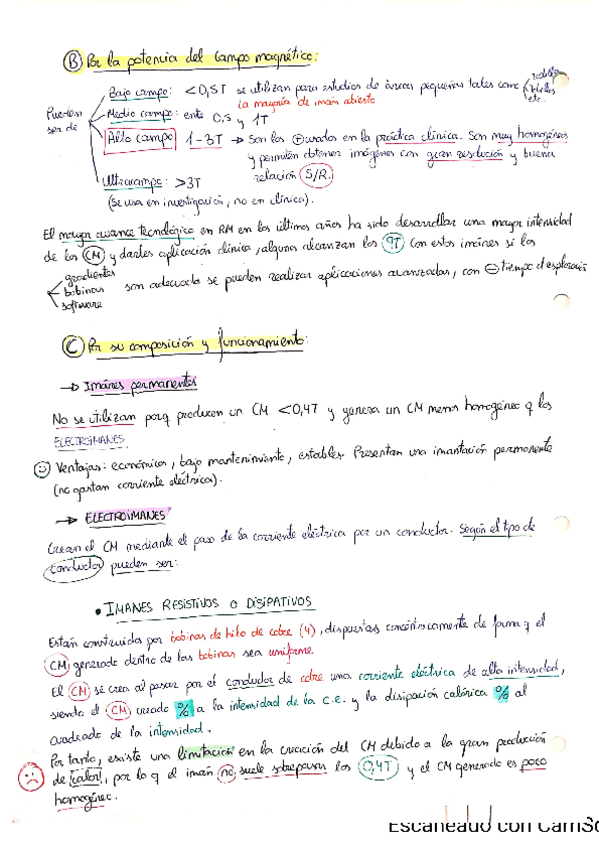 B Por la potencia del campo magnético:
Pueden ser de
Bajo campo: <0,5T se utilizan para estudios de áreas pequeñas tales como rodillas tobillos etc.
La mayoría de imán abierto
Medio campo: ente 0,5 y 1T
Alto campo 1-3T → Son los ⊕ usados en la práctica clínica. Son muy homogéneos
y permiten obtener imágenes con gran resolución y buena
relación S/R.
Ultracampo: >3T
(Se usa en investigación, no en clínica).
El mayor avance tecnológico en RM en los últimos años ha sido desarrollar una mayor intensidad
de los CM y darles aplicación clínica, algunos alcanzan los 9T Con estos imánes si los
gradientes
bobinas son adecuado se pueden realizar aplicaciones avanzadas, con ⊖ tiempo d exploración
software
C Por su composición y funcionamiento:
→ Imánes permanentes
No se utilizan porq producen un CM <0,4T y genera un CM menos homogéneo q los
ELECTROIMANES
Ventajas: económicos, bajo mantenimiento, estables. Presentan una imantación permanente
(no gastan corriente eléctrica).
→ ELECTROIMANES
Crean el CM mediante el paso de la corriente eléctrica por un conductor. Según el tipo de
conductor pueden ser:
• IMANES RESISTIVOS O DISIPATIVOS
Están construidos por bobinas de hilo de cobre (4), dispuestas concéntricamente de forma q el
CM generado dentro de las bobinas sea uniforme.
El CM se crea al pasar por el conductor de cobre una corriente eléctrica de alta intensidad,
siendo el CM creado % a la intensidad de la c.e. y la disipación calórica % al
cuadrado de la intensidad.
Por tanto, existe una limitación en la creación del CM debido a la gran producción
de calor, por lo q el imán no suele sobrepasar los 0,4T y el CM generado es poco
homogéneo.
Escaneado con CamSc